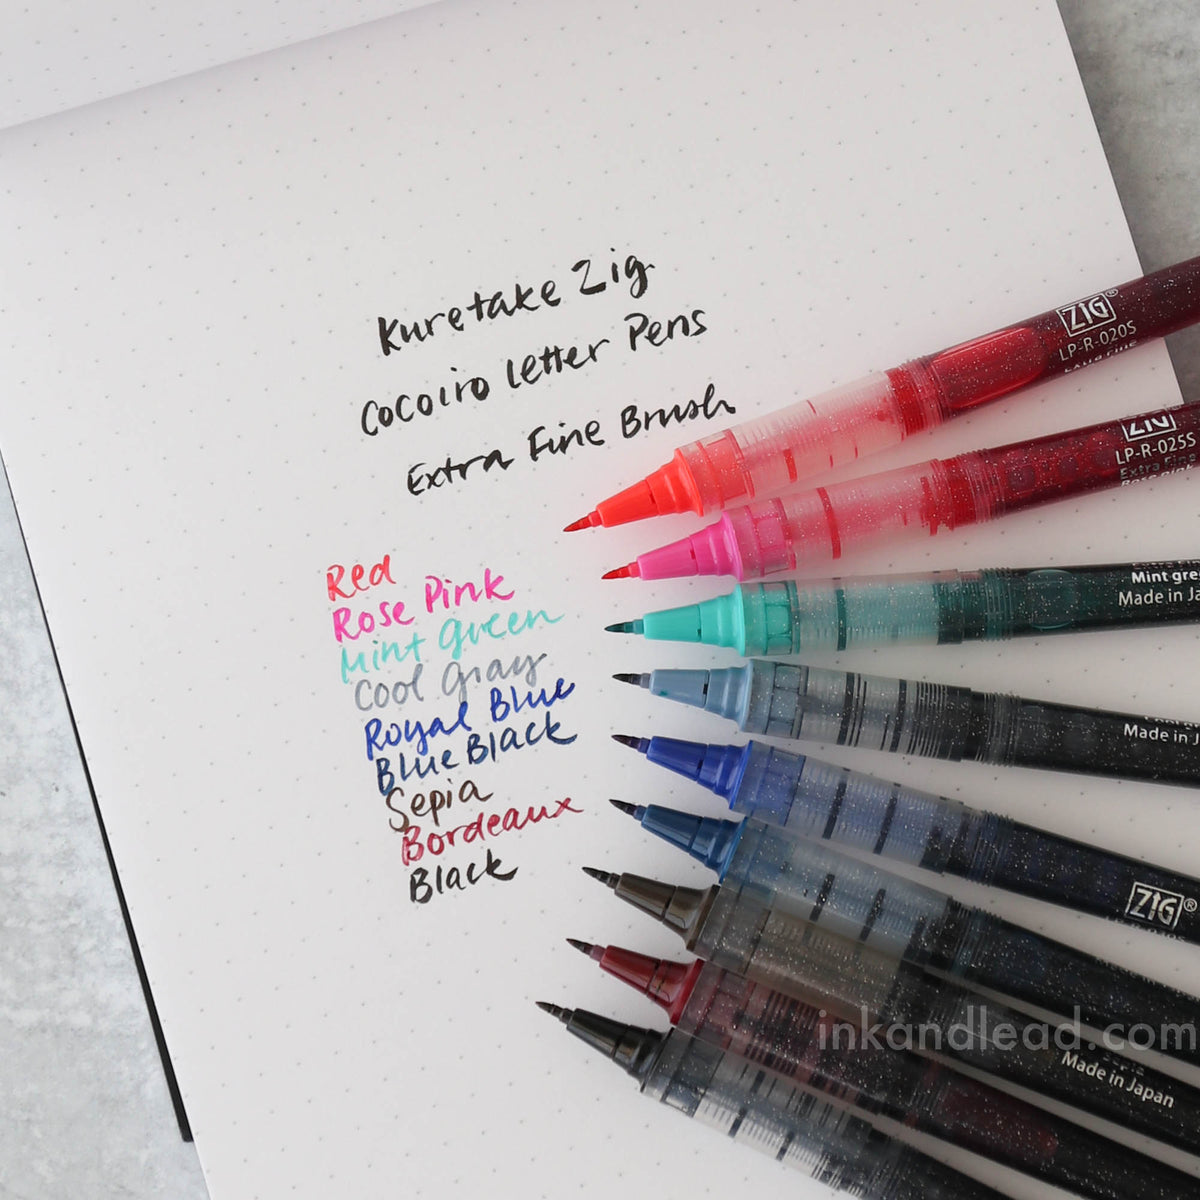 Kuretake Zig
Cocoiro Letter Pens
Extra Fine Brush
Red
Rose Pink
Mint Green
Cool Gray
Royal Blue
Blue Black
Sepia
Bordeaux
Black
ZIG®
LP-R-020S
Extra Fine
ZIG
LP-R-025S
Extra Fine
Mint gre
Made in Ja
Made in J
ZIG®
inkandlead.com
Made in Japan